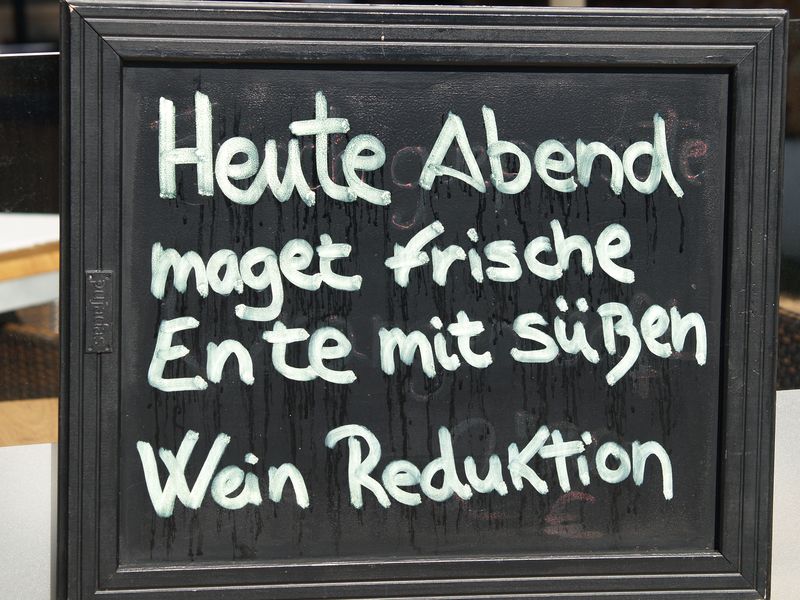 Heute Abend
maget frische
Ente mit süßen
Wein Reduktion